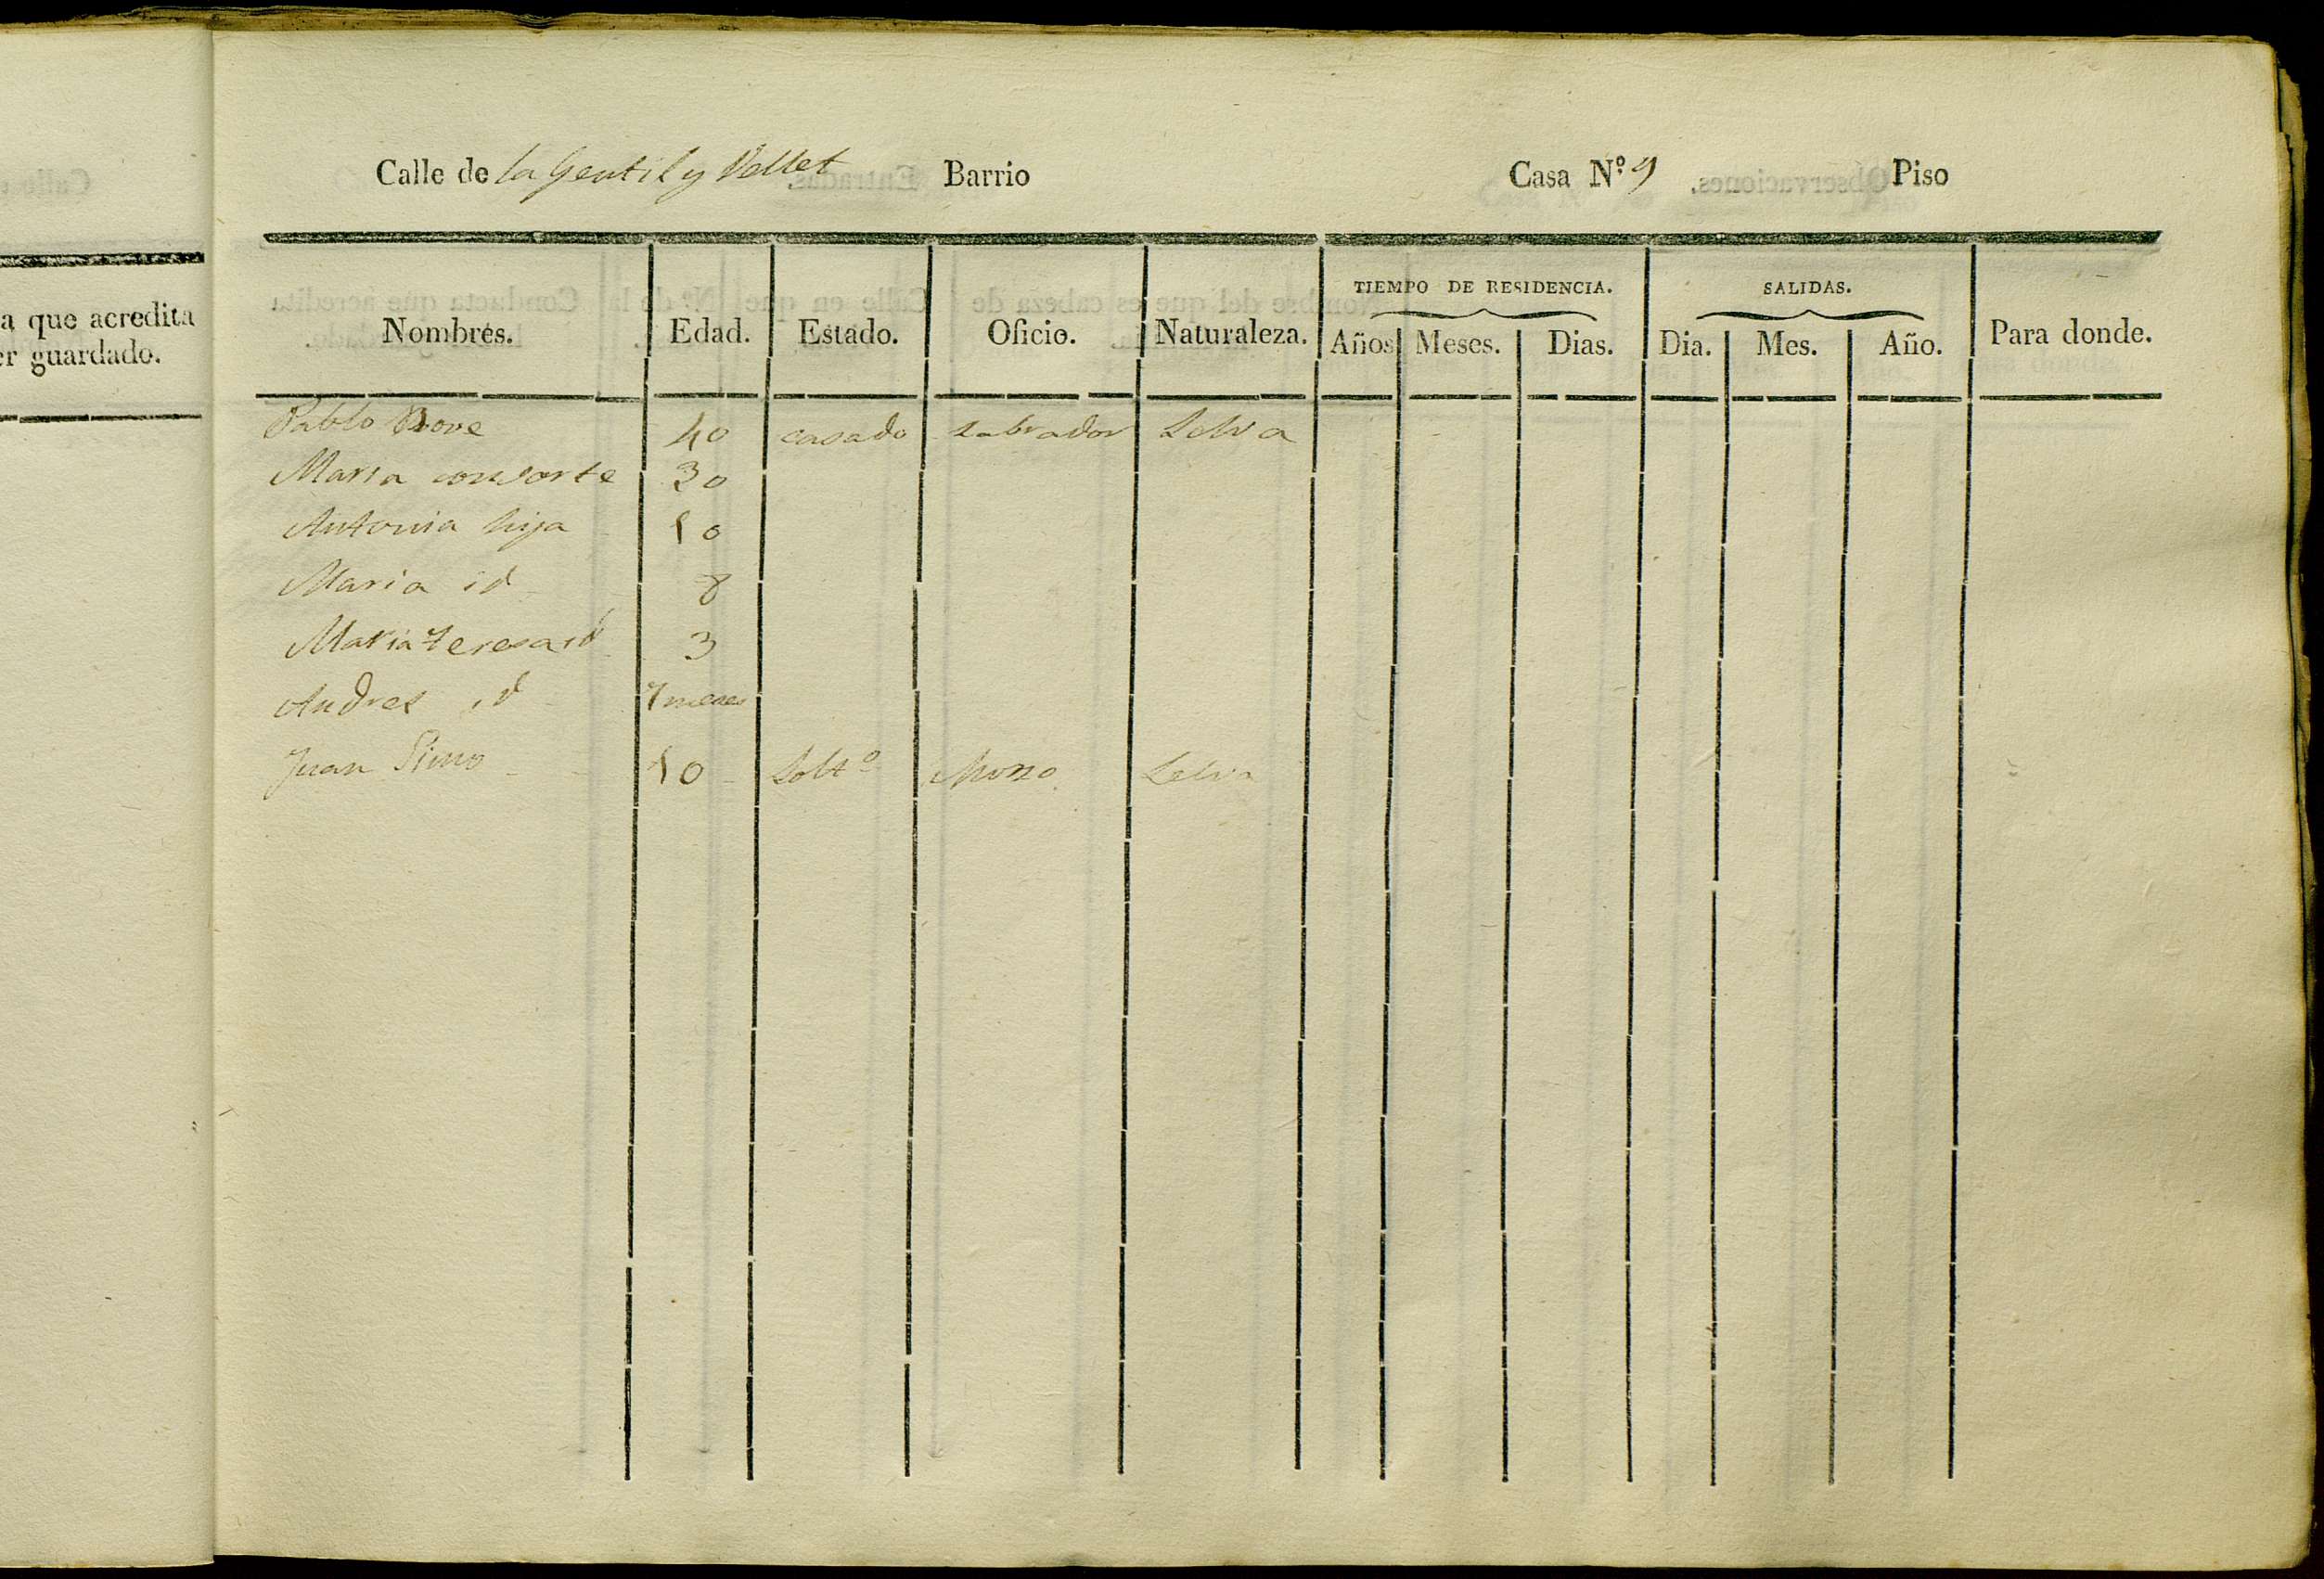 a que acredita
er guardado.
Calle de la Gentil y Vellet Barrio Casa N.º 9 Piso
TIEMPO DE RESIDENCIA. SALIDAS.
Nombres. Edad. Estado. Oficio. Naturaleza. Años Meses. Dias. Dia. Mes. Año. Para donde.
Pablo Bove 40 casado Labrador Selva
Maria consorte 30
Antonia hija 10
Maria id 8
Maria Teresa id 3
Andres id 7 meses
Juan Simo 10 Solt.º Mozo Selva